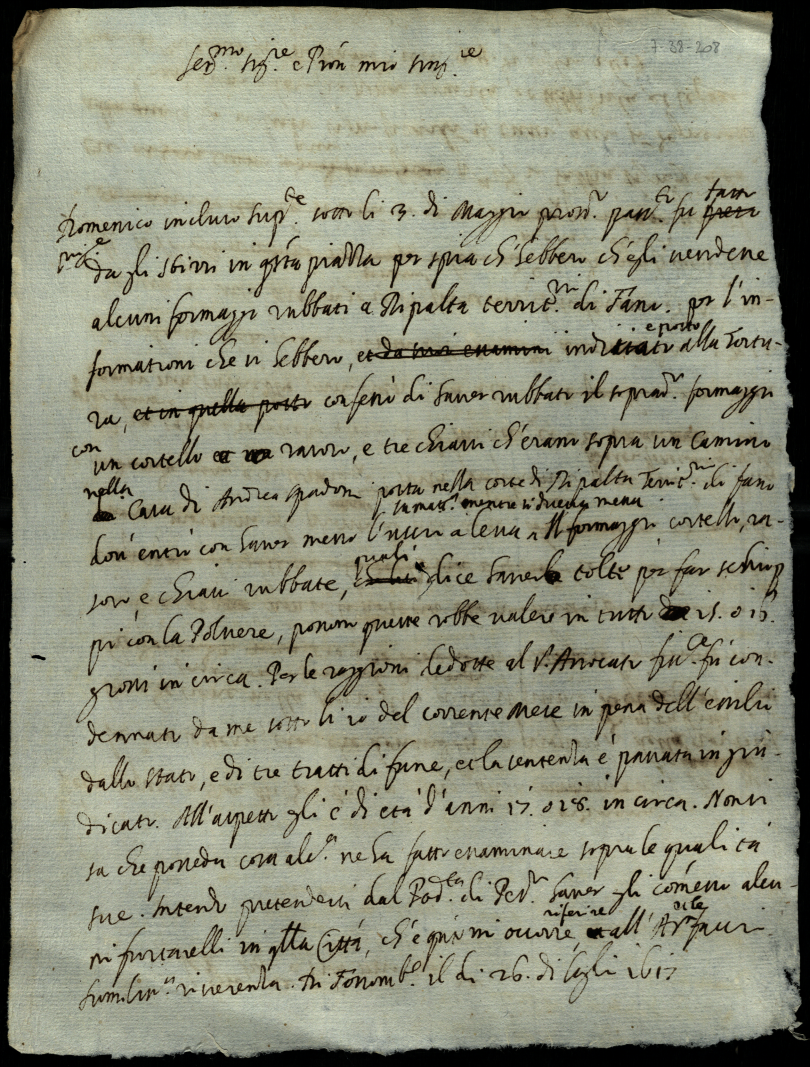 7-38-208
Ser.mo Sig.re e P'ron mio sing.re
Domenico incluso sup.te sotto li 3. di Maggio pross.o pass.to fu fatto
da gli sbirri in q'sta piazza per spia ch'hebbero ch'egli vendeva
alcuni formaggi rubbati a Ripalta territ.rio di Fano. per l'in-
formationi che si hebbero, et da suoi examini inditiato e posto alla Tortu-
ra, et in quella posto confessò di haver rubbato il soprad.o formaggio
con un cortello et un rasoro, e tre chiavi ch'erano sopra un Camino
nella Casa di Andrea Spadoni posta nella corte di Ripalta Territ.rio di fano
dov'entrò con haver messo l'uscio a leva la matt.a mentre si diceva messa Il formaggio cortello, ra-
soro, e chiavi rubbate, quali dice haverle tolte per far schiop
pi con la Polvere, ponno queste robbe valere in tutto 15. o 16.
grossi in circa. Per le raggioni dedotte al S.r Avvocato fisc.le fu con-
dennato da me sotto li 10 del corrente Mese in pena dell'essilio
dallo stato, e di tre tratti di fune, et la sentenza è passata in giu-
dicato. All'aspetto gli è di età d'anni 17. o 18. in circa. Non si
sa che posseda cosa alc.a ne ha fatto essaminare sopra le qualità
sue. Intendo pretendersi dal Pod.tà di Ped.o haver gli com'esso alcu-
ni furtarelli in q'lla Città, ch'è q'nto mi occorre riferire all'A.V.
humiliss.a riverenza. Di Fossomb.e il di 26. di luglio 1617